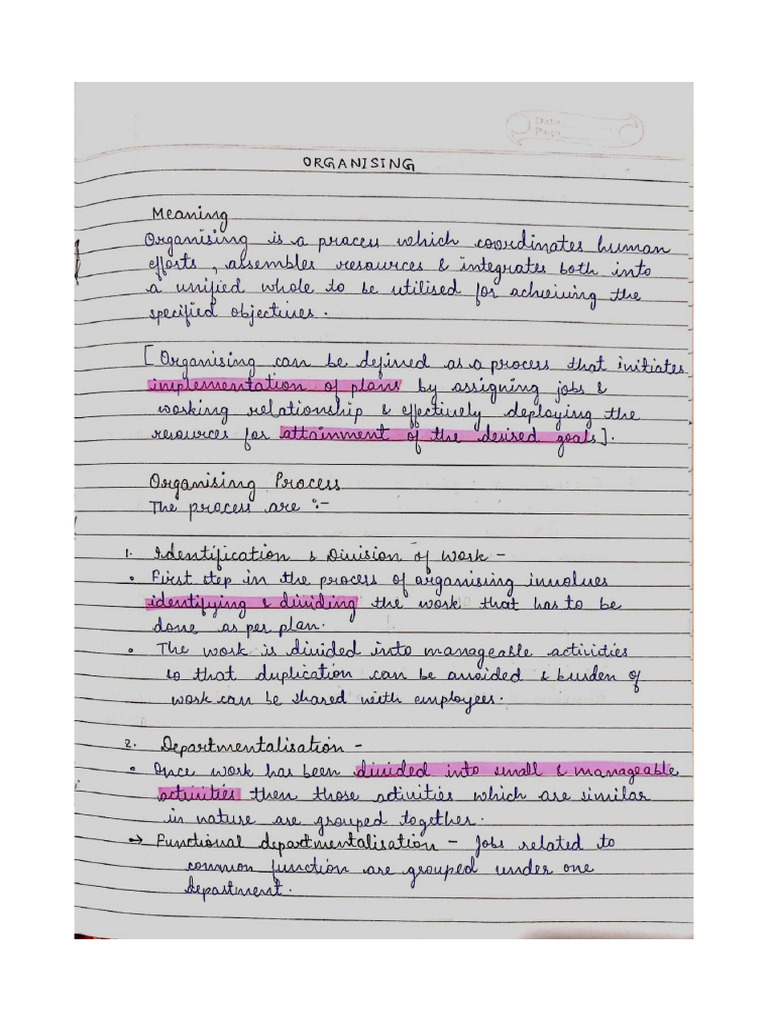 Date
Page
ORGANISING
Meaning
Organising is a process which coordinates human
efforts, assembles resources & integrates both into
a unified whole to be utilised for achieving the
specified objectives.
[Organising can be defined as a process that initiates
implementation of plans by assigning jobs &
working relationship & effectively deploying the
resources for attainment of the desired goals].
Organising Process
The process are :-
1. Identification & Division of Work -
• First step in the process of organising involves
identifying & dividing the work that has to be
done as per plan.
• The work is divided into manageable activities
so that duplication can be avoided & burden of
work can be shared with employees.
2. Departmentalisation -
• Once work has been divided into small & manageable
activities then those activities which are similar
in nature are grouped together.
→ Functional departmentalisation - Jobs related to
common function are grouped under one
department.